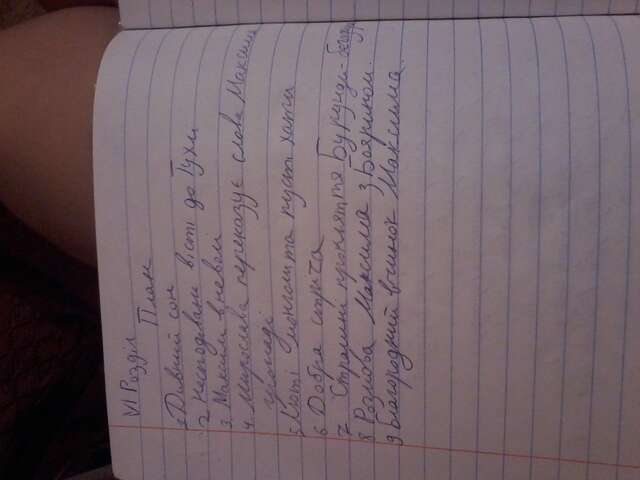 VI Розділ
План
1. Дивний сон
2. Несподівані вісті до Тухлі
3. Максим в неволі
4. Мирослава переказує слова Максима
громаді
5. Люті монголи та пусті хати
6. Добра стріча
7. Страшні прокляття Бурунди-бегадира
8 Розмова Максима з Боярином.
9 Благородний вчинок Максима.